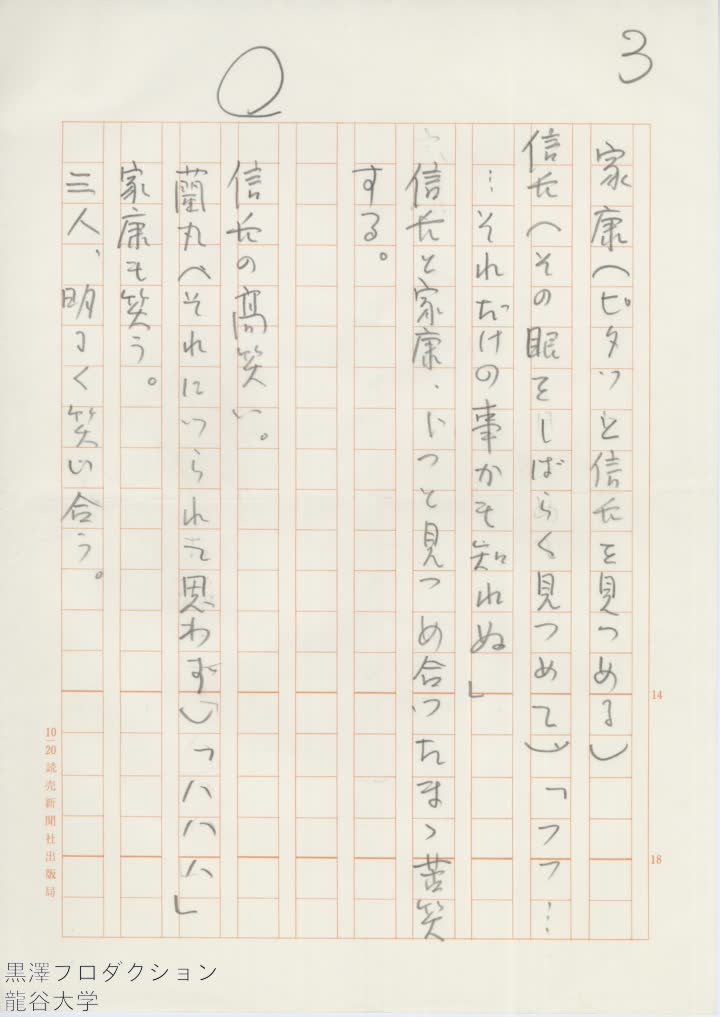 3
家康(ピタッと信長を見つめる)
信長(その眼をしばらく見つめて)「フフ…
…それだけの事かも知れぬ」
信長と家康、じっと見つめ合ったまゝ苦笑
する。
信長の高笑い。
蘭丸(それにつられて思わず)「ハハハ」
家康も笑う。
三人、明るく笑い合う。
14
18
10―20 読売新聞社出版局
黒澤プロダクション
龍谷大学